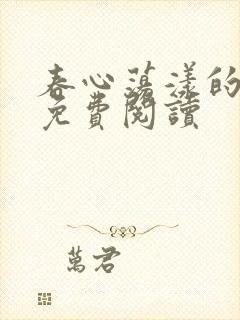 春心蕩漾的
免費閱讀
萬君